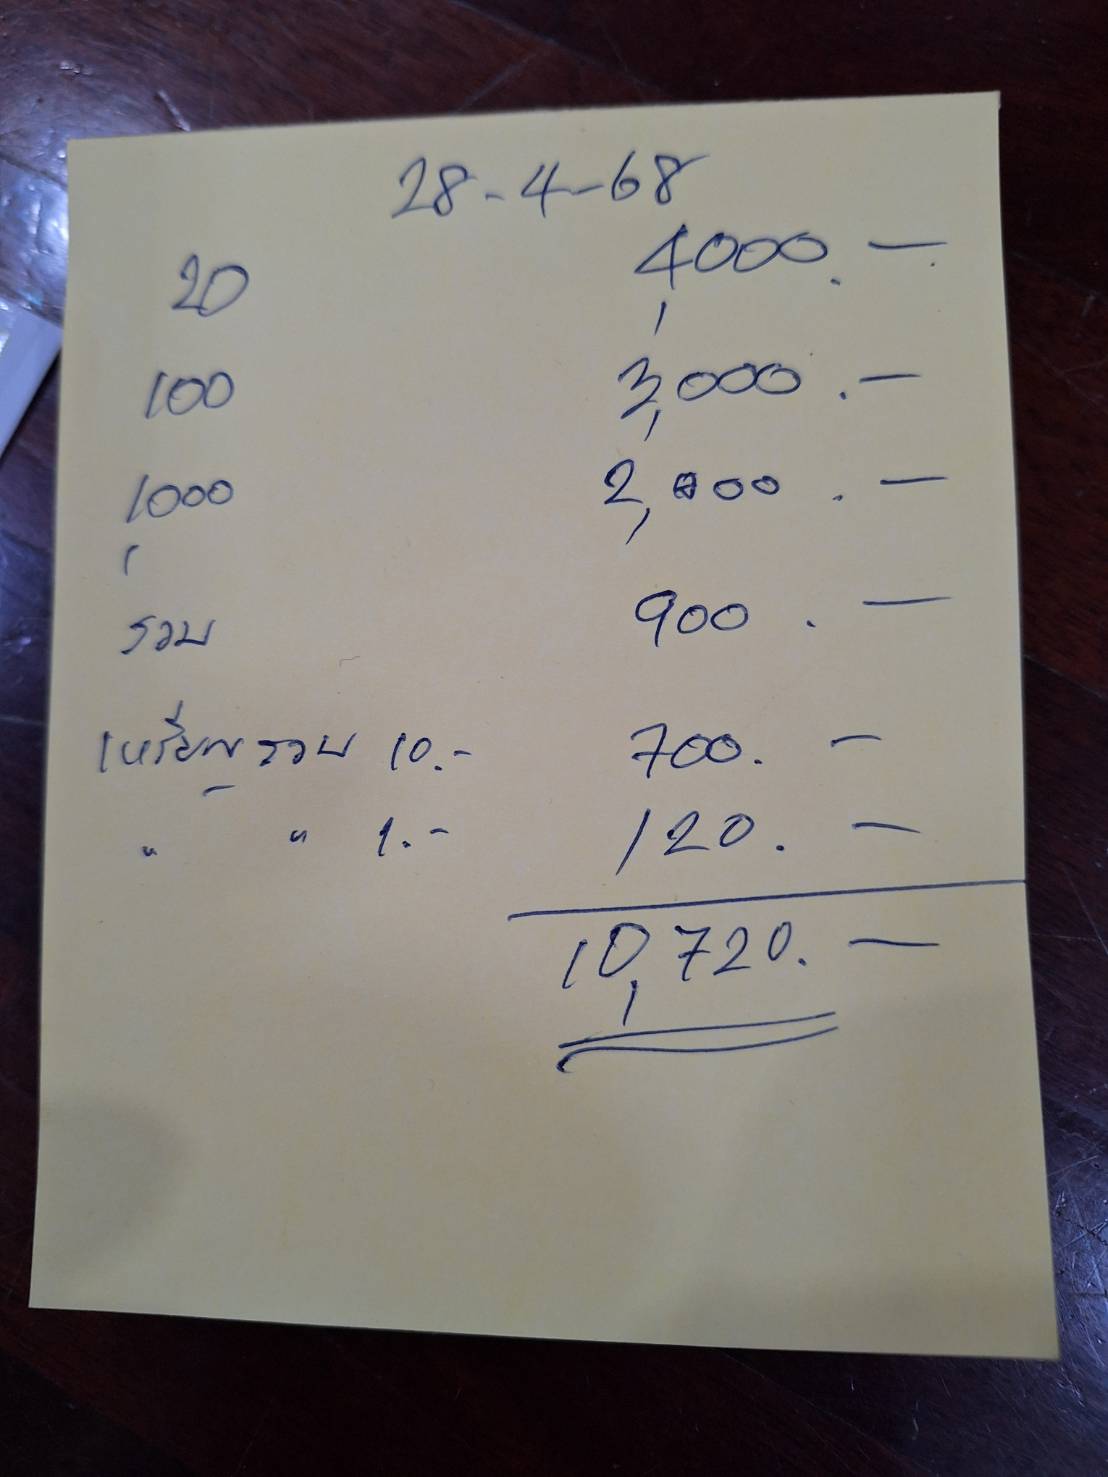 28-4-68
20 4,000.-
100 3,000.-
1,000 2,000.-
รวม 900.-
เหรียญรวม 10.- 700.-
" " 1.- 120.-
10,720.-